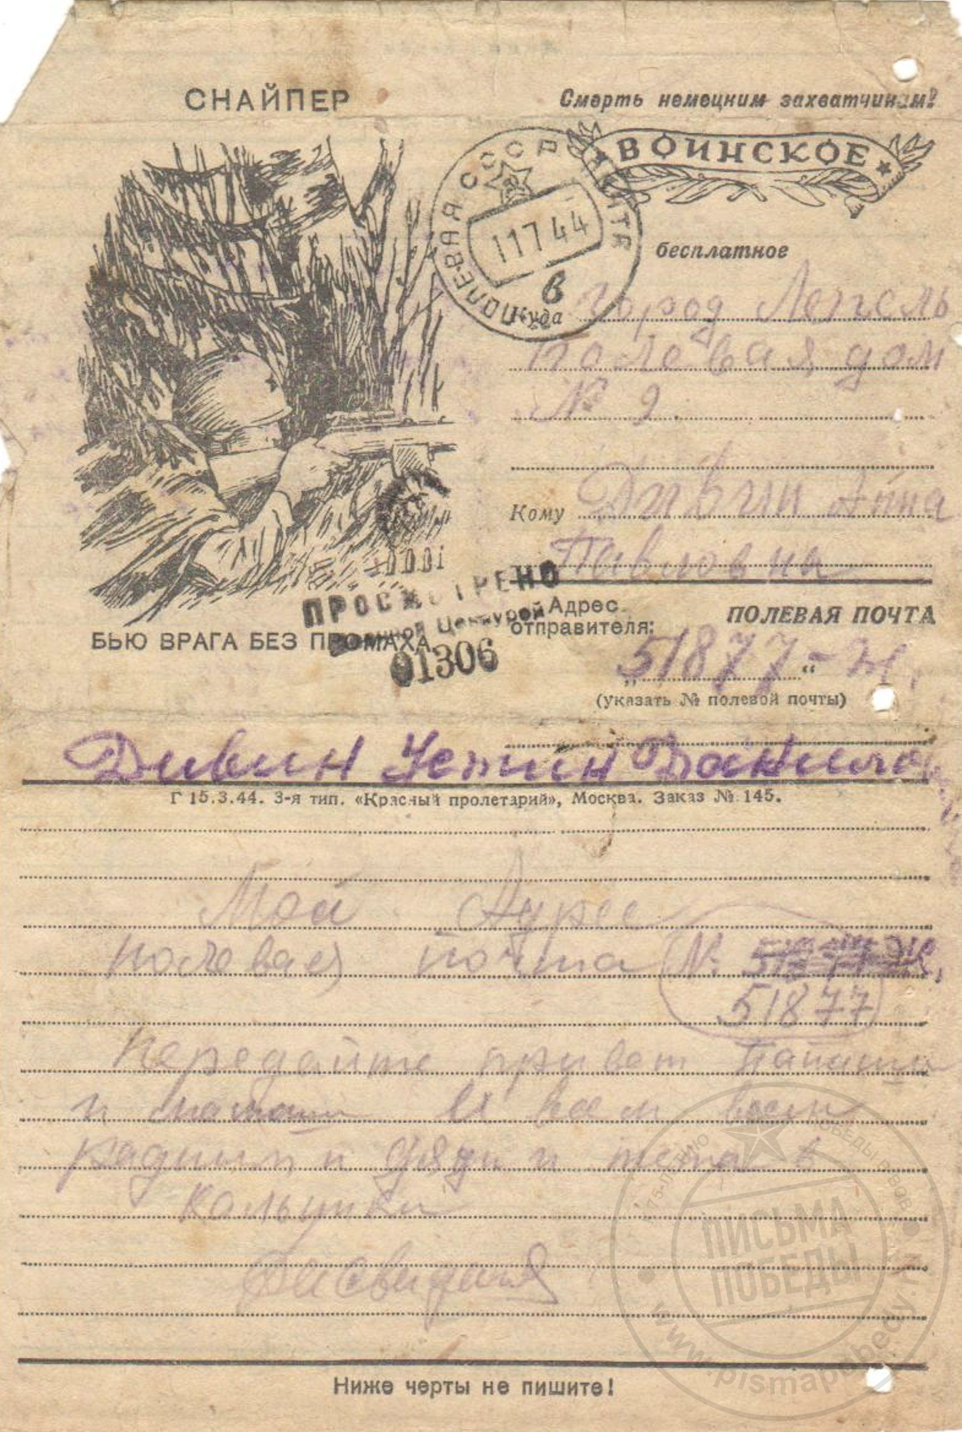 СНАЙПЕР
Смерть немецким захватчикам!
ВОИНСКОЕ
ПОЛЕВАЯ ПОЧТА СССР
11 7 44
в
бесплатное
Куда Город Лепель
Полевая, дом
№ 9.
Кому Дивин Анна
Павловна
ПРОСМОТРЕНО
Военной Цензурой
01306
БЬЮ ВРАГА БЕЗ ПРОМАХА
Адрес отправителя:
ПОЛЕВАЯ ПОЧТА
„51877-Ж“
(указать № полевой почты)
Дивин Устин Данилов
Г 15.3.44. 3-я тип. «Красный пролетарий», Москва. Заказ № 145.
Мой Адрес
полевая почта № 51877-Ж,
51877
Передайте привет Папаши
и мамаши и всем всем
радным и дяди и тета в
Досвидания
Ниже черты не пишите!
ПИСЬМА
ПОБЕДЫ
www.pismapobedy.ru